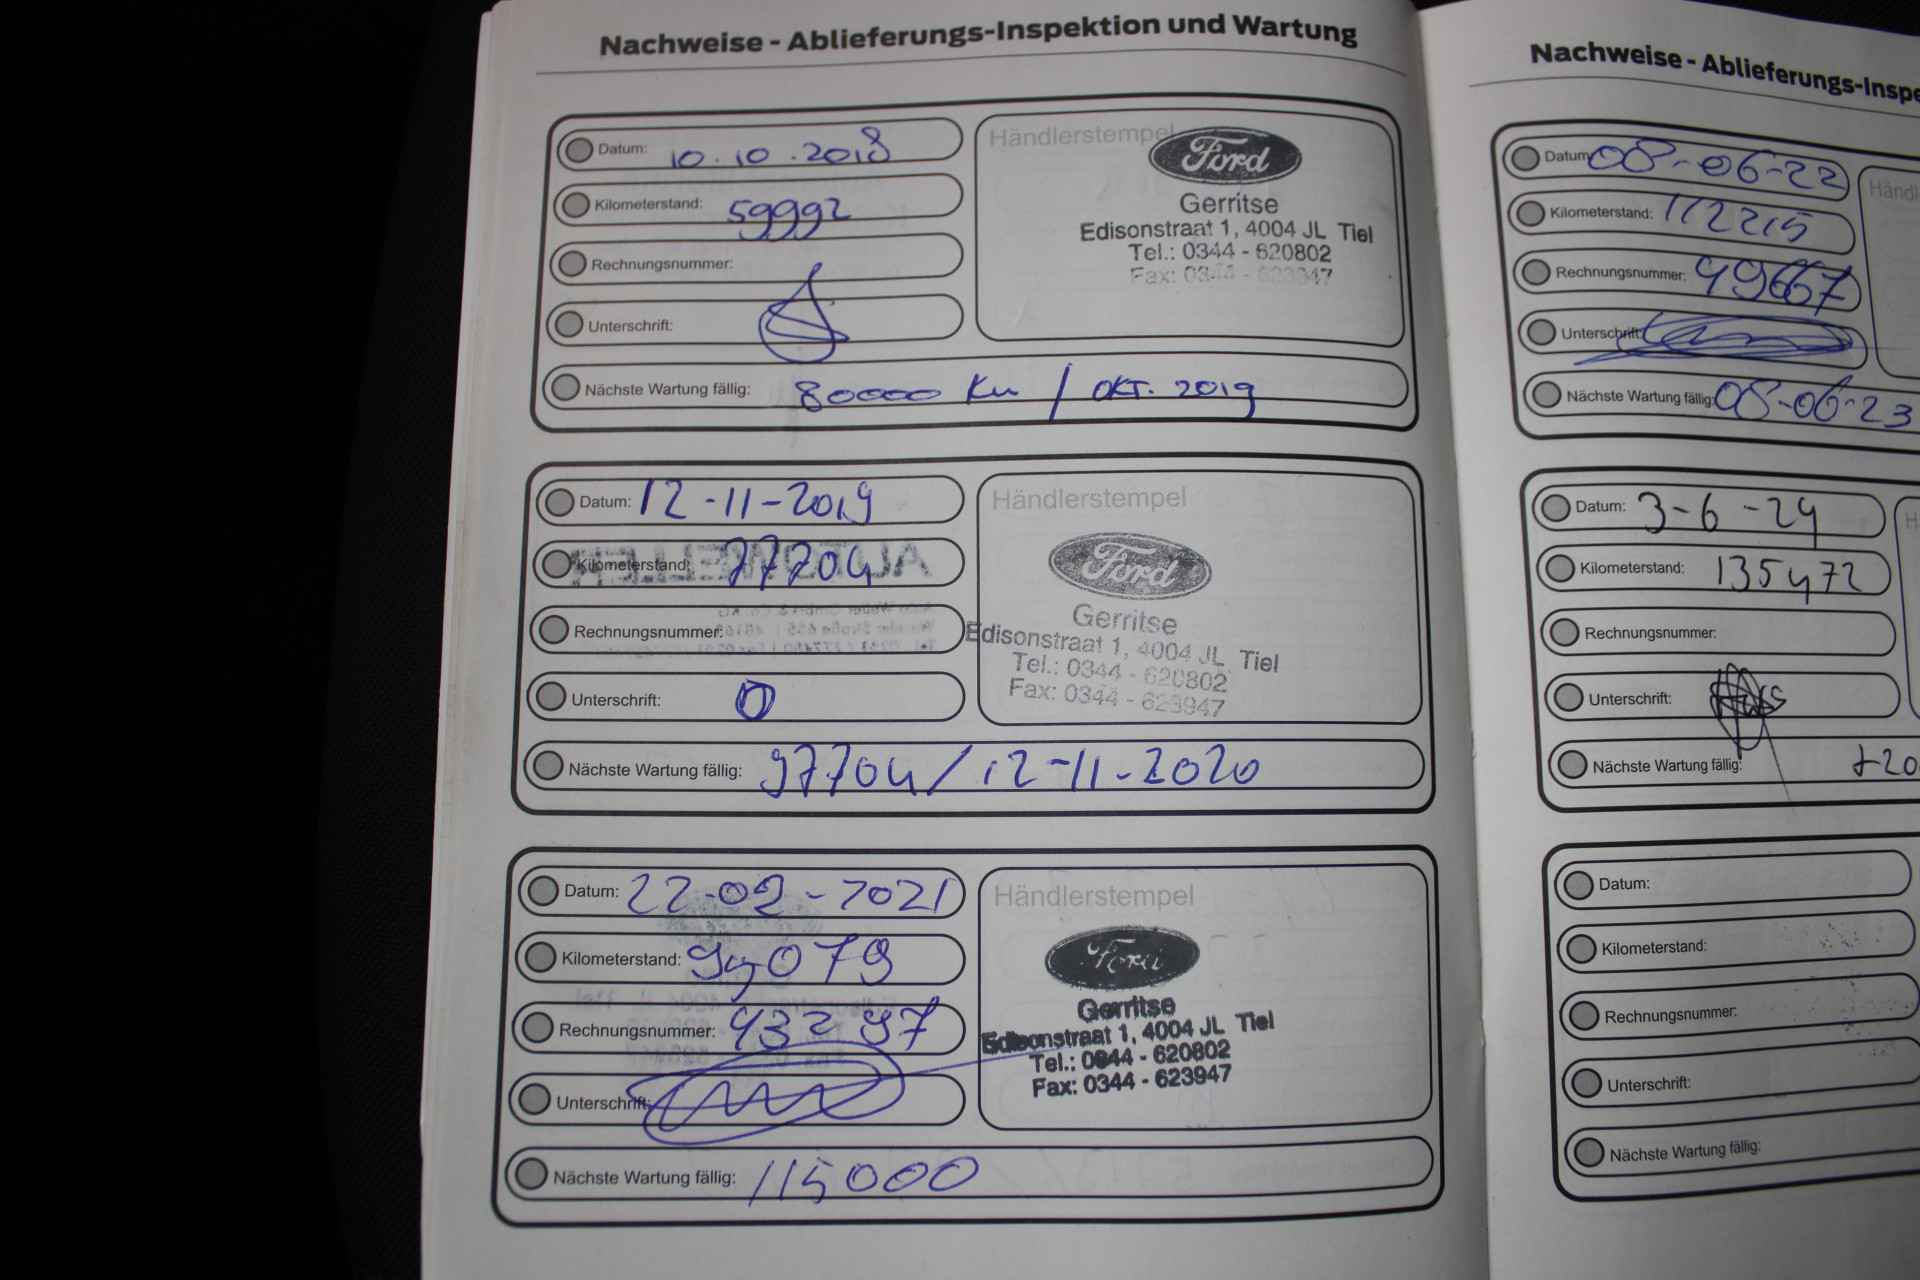 Nachweise - Ablieferungs-Inspektion und Wartung
Datum: 10.10.2018
Kilometerstand: 59992
Rechnungsnummer:
Unterschrift:
Nächste Wartung fällig: 80000 Km / OKT. 2019
Händlerstempel
Ford
Gerritse
Edisonstraat 1, 4004 JL Tiel
Tel.: 0344 - 620802
Fax: 0344 - 623947
Datum: 12-11-2019
Kilometerstand: 77704
Rechnungsnummer:
Unterschrift:
Nächste Wartung fällig: 97704 / 12-11-2020
Händlerstempel
Ford
Gerritse
Edisonstraat 1, 4004 JL Tiel
Tel.: 0344 - 620802
Fax: 0344 - 623947
Datum: 22-02-2021
Kilometerstand: 94079
Rechnungsnummer: 43297
Unterschrift:
Nächste Wartung fällig: 115000
Händlerstempel
Ford
Gerritse
Edisonstraat 1, 4004 JL Tiel
Tel.: 0344 - 620802
Fax: 0344 - 623947
Nachweise - Ablieferungs-Inspe
Datum 08-06-22
Kilometerstand: 112215
Rechnungsnummer: 49667
Unterschrift:
Nächste Wartung fällig: 08-06-23
Händl
Datum: 3-6-24
Kilometerstand: 135472
Rechnungsnummer:
Unterschrift:
Nächste Wartung fällig: +20
H
Datum:
Kilometerstand:
Rechnungsnummer:
Unterschrift:
Nächste Wartung fällig: